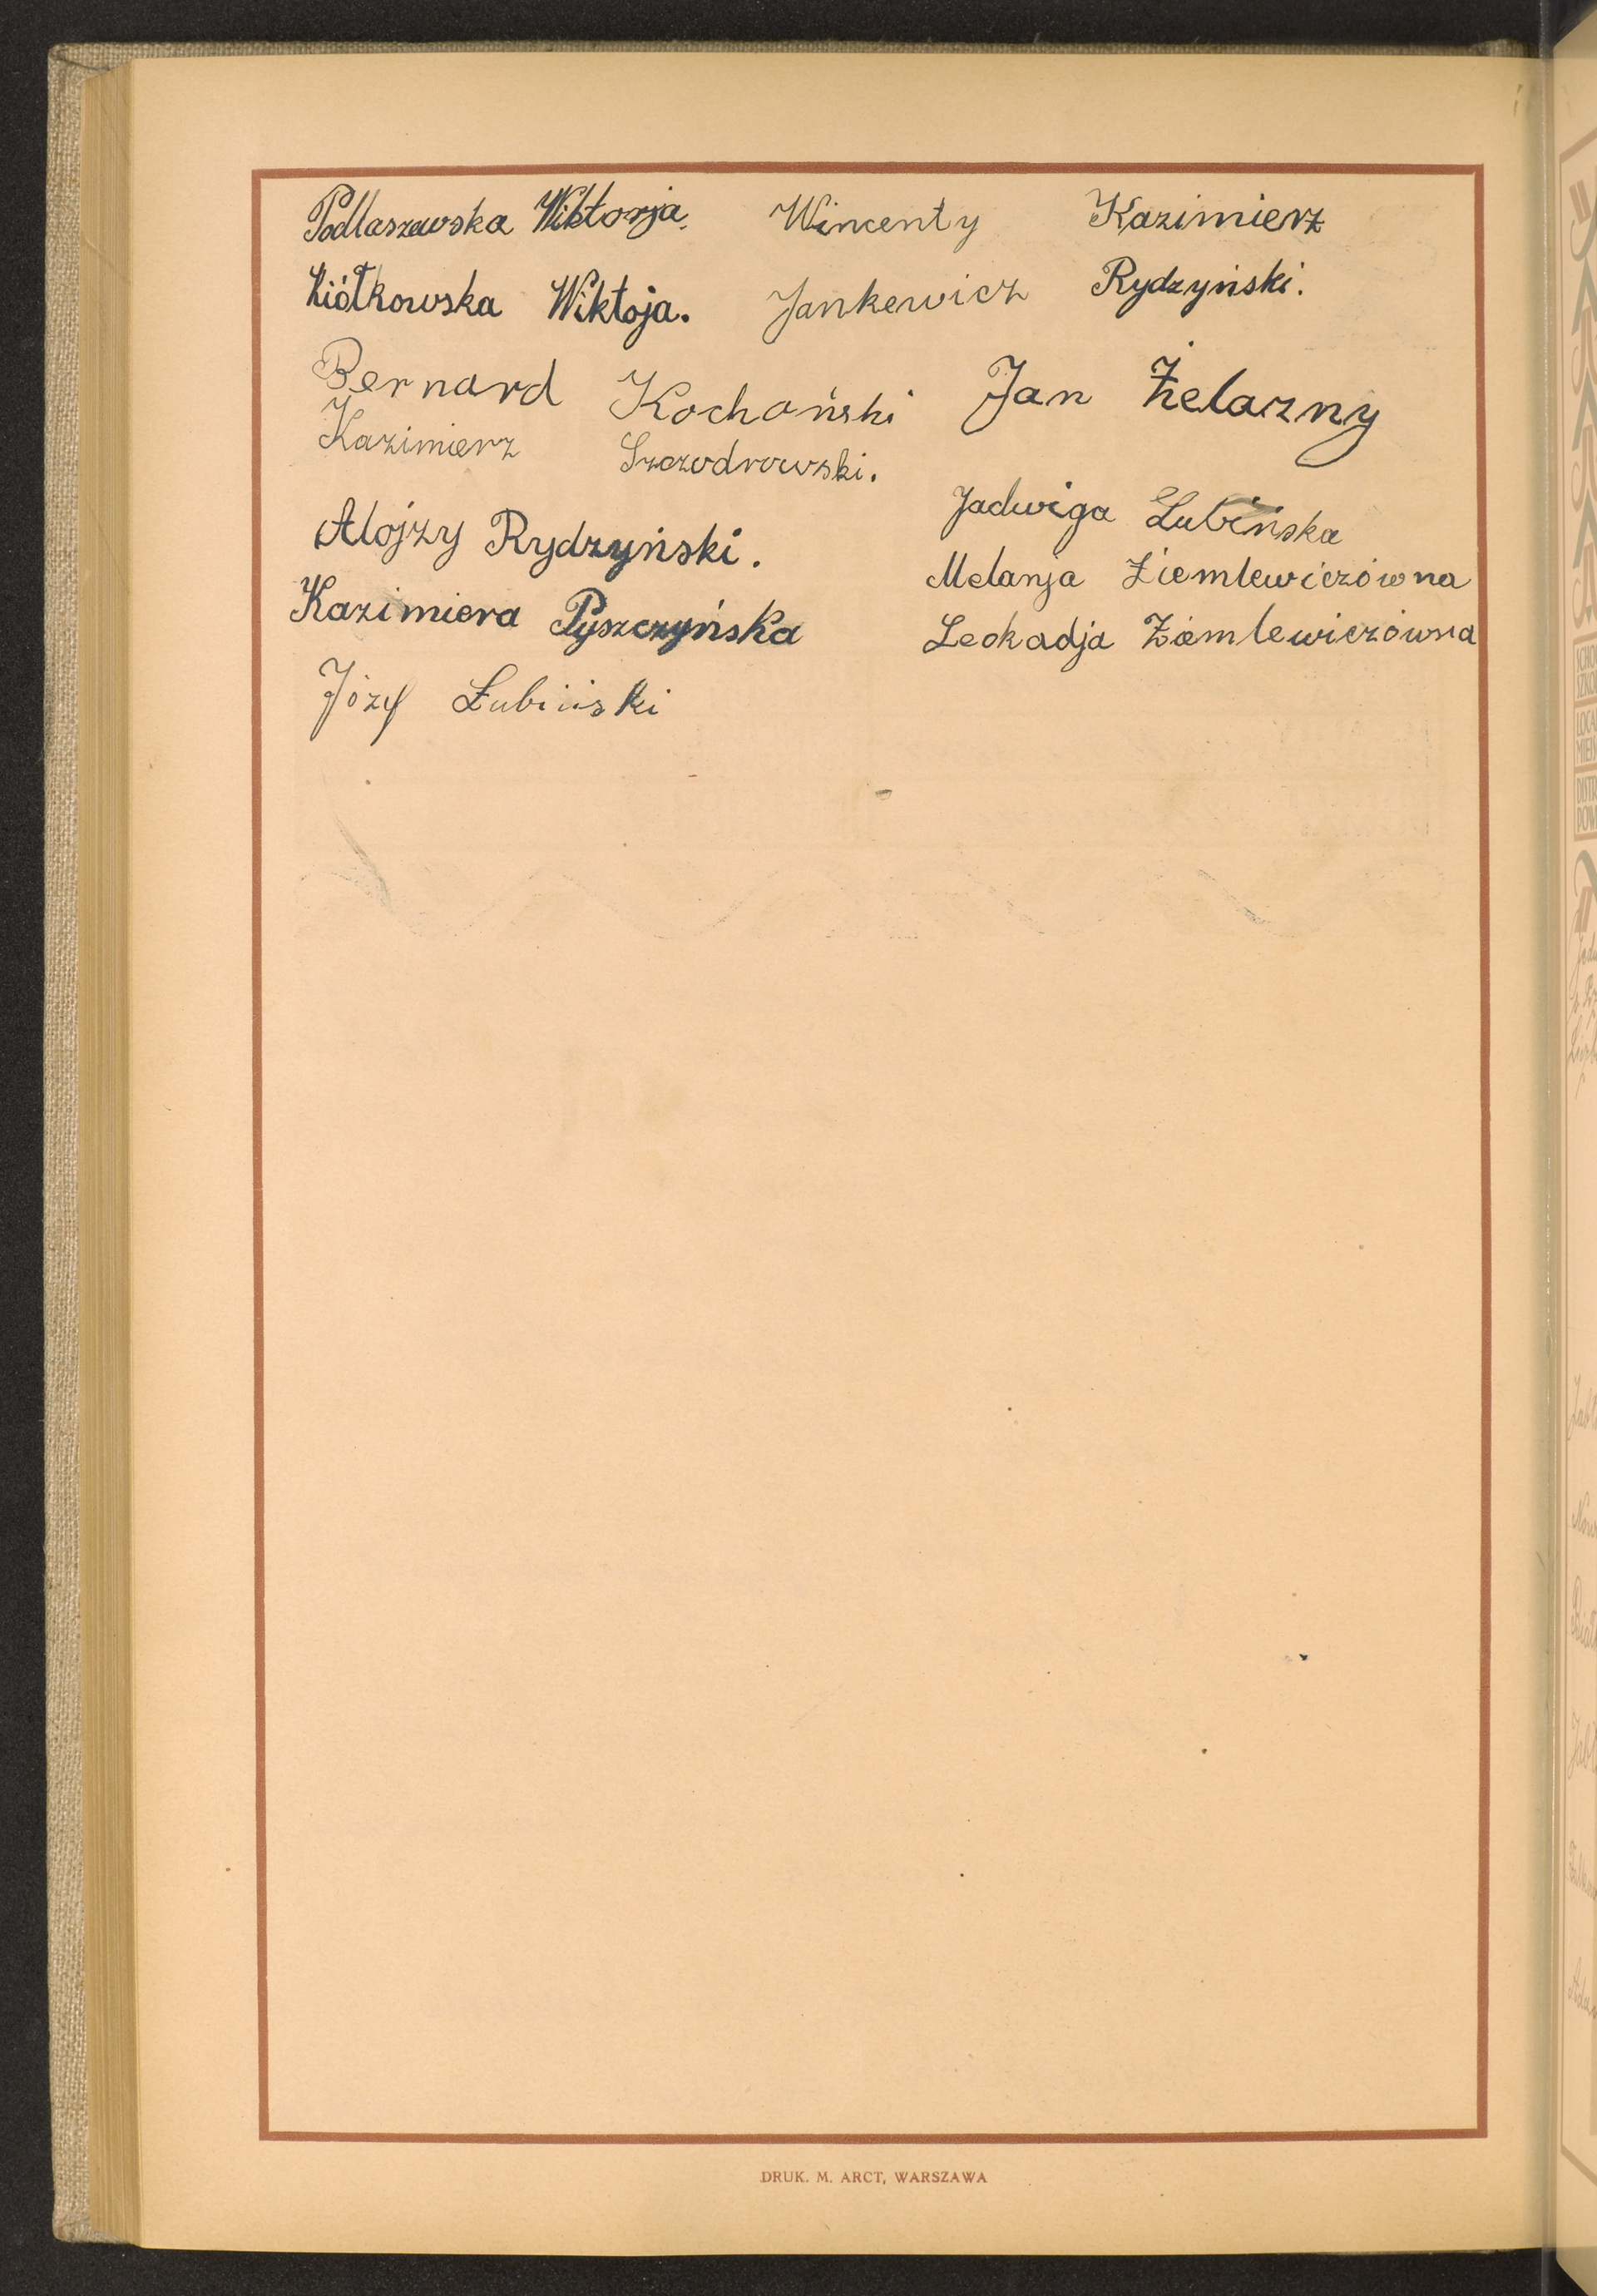 Podlaszewska Wiktorja. Wincenty Kazimierz
Kiółkowska Wiktoja. Jankewicz Rydzyński.
Bernard Kochański Jan Żelazny
Kazimierz Szczodrowski.
Jadwiga Łubińska
Alojzy Rydzyński.
Melanja Ziemlewiczówna
Kazimiera Pyszczyńska
Leokadja Ziemlewiczówna
Józef Łubiński
DRUK. M. ARCT, WARSZAWA